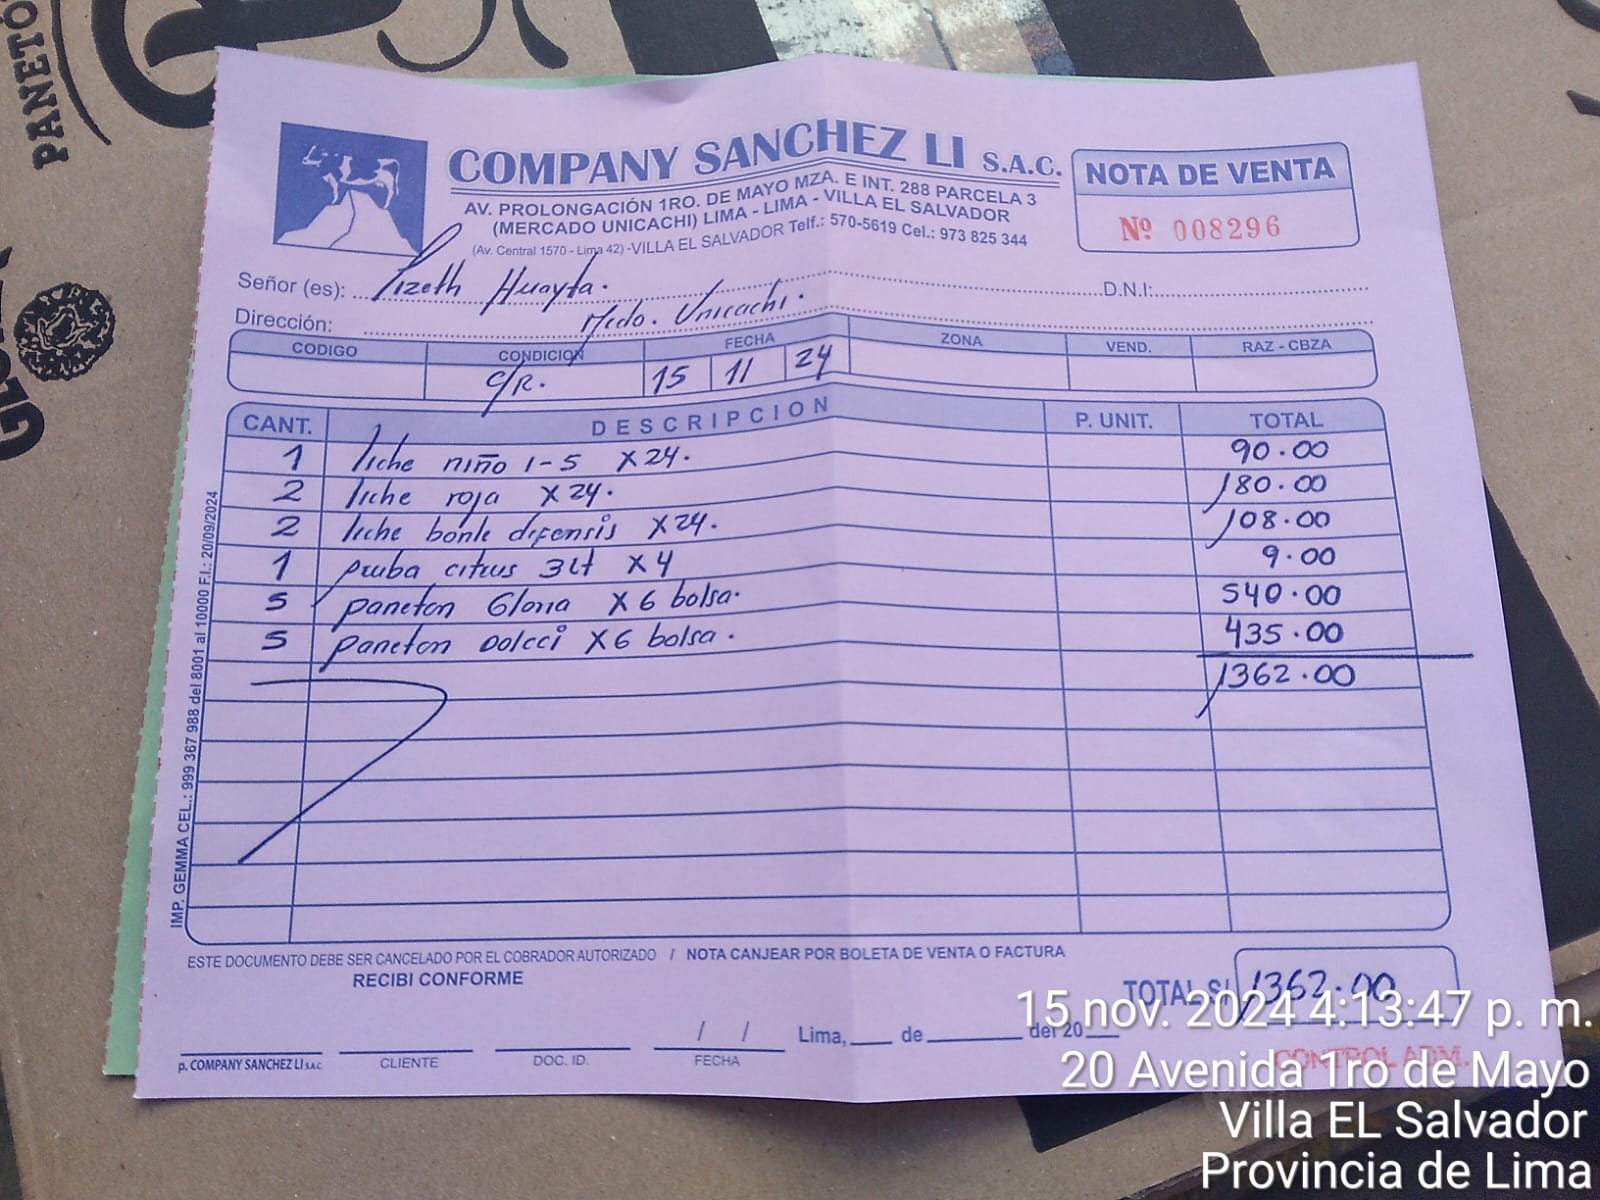 PANETÓ
COMPANY SANCHEZ LI S.A.C.
AV. PROLONGACIÓN 1RO. DE MAYO MZA. E INT. 288 PARCELA 3
(MERCADO UNICACHI) LIMA - LIMA - VILLA EL SALVADOR
(Av. Central 1570 - Lima 42) -VILLA EL SALVADOR Telf.: 570-5619 Cel.: 973 825 344
NOTA DE VENTA
Nº 008296
Señor (es): Lizeth Huayta. D.N.I:
Dirección: Mcdo. Unicachi.
CODIGO CONDICION FECHA ZONA VEND. RAZ - CBZA
C/R. 15 11 24
CANT. DESCRIPCION P. UNIT. TOTAL
1 leche niño 1-5 x24. 90.00
2 leche roja x24. 180.00
2 leche bonle defensis x24. 108.00
1 pruba citrus 3Lt x4 9.00
5 paneton Gloria x6 bolsa. 540.00
5 paneton Dolcci x6 bolsa. 435.00
1362.00
IMP. GEMMA CEL.: 999 367 988 del 8001 al 10000 F.I.: 20/09/2024
ESTE DOCUMENTO DEBE SER CANCELADO POR EL COBRADOR AUTORIZADO / NOTA CANJEAR POR BOLETA DE VENTA O FACTURA
RECIBI CONFORME
TOTAL S/ 1362.00
/ / Lima, de del 20
p. COMPANY SANCHEZ LI S.A.C. CLIENTE DOC. ID. FECHA
CONTROL ADM.
15 nov. 2024 4:13:47 p. m.
20 Avenida 1ro de Mayo
Villa EL Salvador
Provincia de Lima